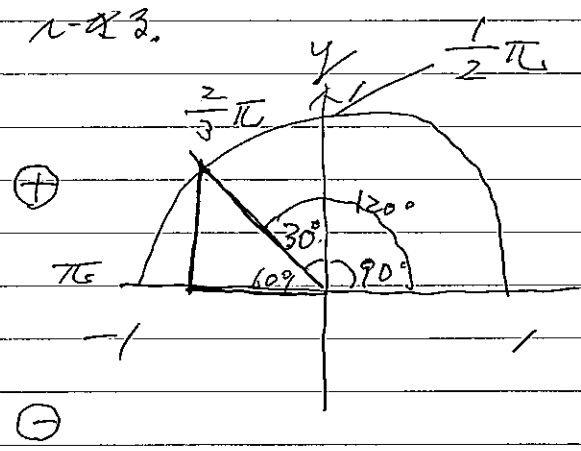 y
1
1/2 π
2/3 π
⊕
120°
30°
π
60°
90°
-1
1
⊖